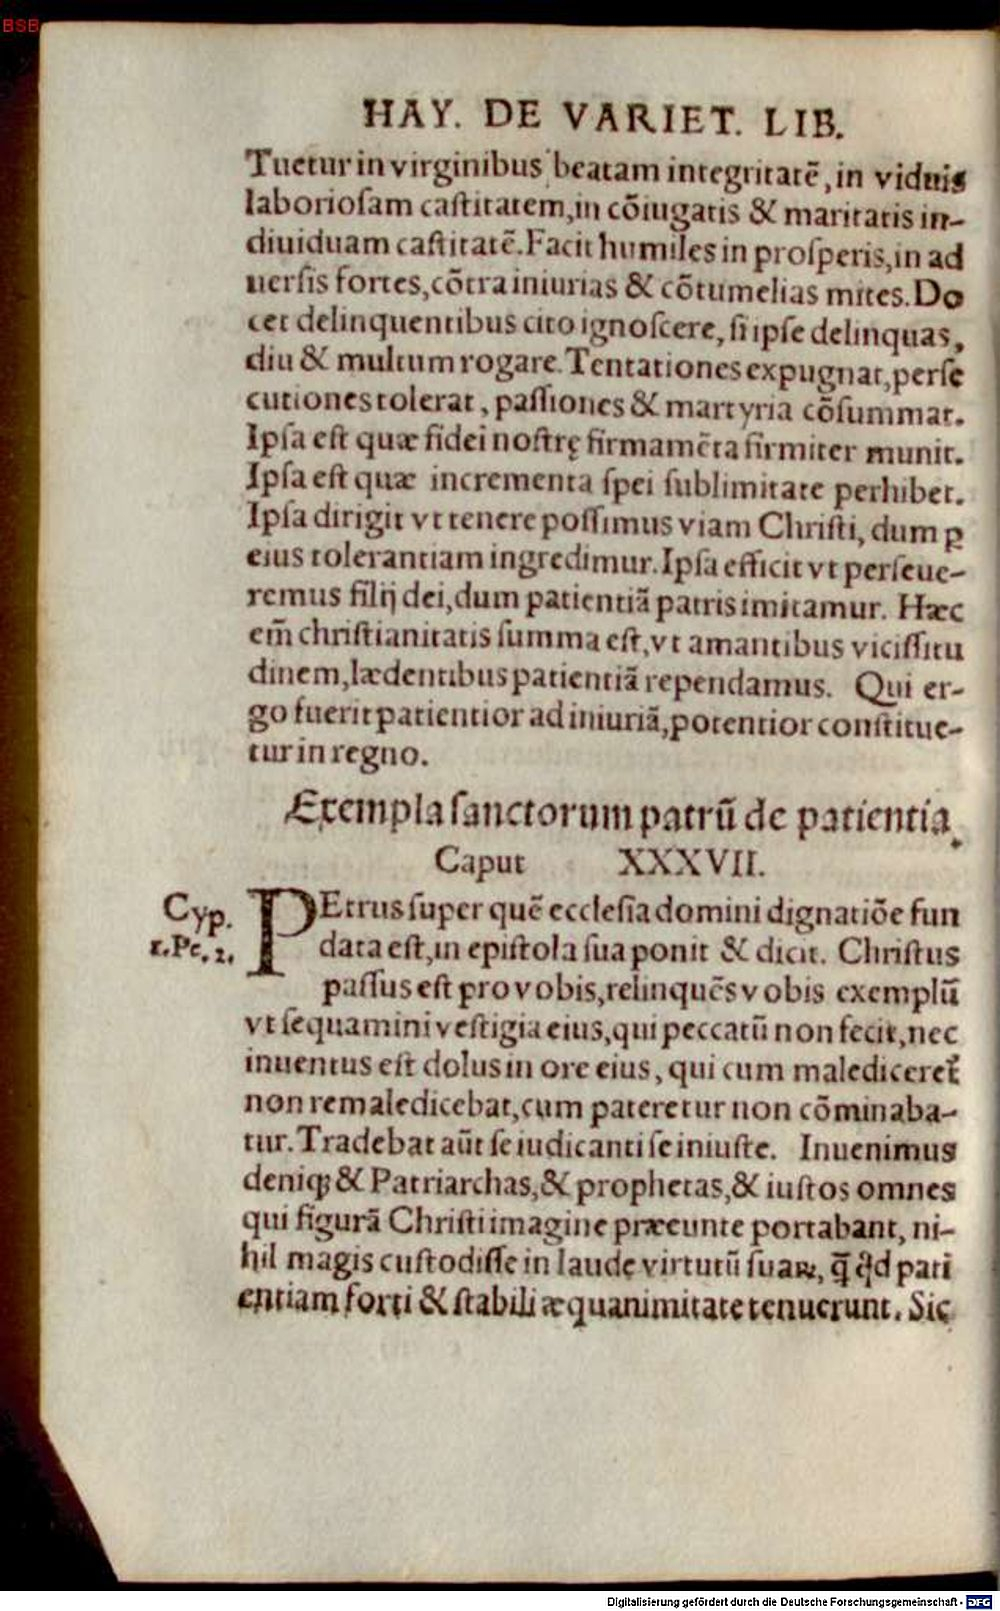 BSB
HAY. DE VARIET. LIB.
Tuetur in virginibus beatam integritatē, in viduis
laboriosam castitatem, in cōiugatis & maritatis in-
diuiduam castitatē. Facit humiles in prosperis, in ad
uersis fortes, cōtra iniurias & cōtumelias mites. Do
cet delinquentibus cito ignoscere, si ipse delinquas,
diu & multum rogare. Tentationes expugnat, perse
cutiones tolerat, passiones & martyria cōsummat.
Ipsa est quæ fidei nostrę firmamēta firmiter munit.
Ipsa est quæ incrementa spei sublimitate perhibet.
Ipsa dirigit vt tenere possimus viam Christi, dum ꝑ
eius tolerantiam ingredimur. Ipsa efficit vt perseue-
remus filij dei, dum patientiā patris imitamur. Hæc
em̄ christianitatis summa est, vt amantibus vicissitu
dinem, lædentibus patientiā rependamus. Qui er-
go fuerit patientior ad iniuriā, potentior constitue-
tur in regno.
Exempla sanctorum patrū de patientia.
Caput XXXVII.
Cyp.
1.Pe.2.
PEtrus super quē ecclesia domini dignatiōe fun
data est, in epistola sua ponit & dicit. Christus
passus est pro vobis, relinquēs vobis exemplū
vt sequamini vestigia eius, qui peccatū non fecit, nec
inuentus est dolus in ore eius, qui cum malediceret̃
non remaledicebat, cum pateretur non cōminaba-
tur. Tradebat aūt se iudicanti se iniuste. Inuenimus
deniqꝫ & Patriarchas, & prophetas, & iustos omnes
qui figurā Christi imagine præeunte portabant, ni-
hil magis custodisse in laude virtutū suaꝝ, q̄ꝙd pati
entiam forti & stabili æquanimitate tenuerunt. Sic
Digitalisierung gefördert durch die Deutsche Forschungsgemeinschaft - DFG